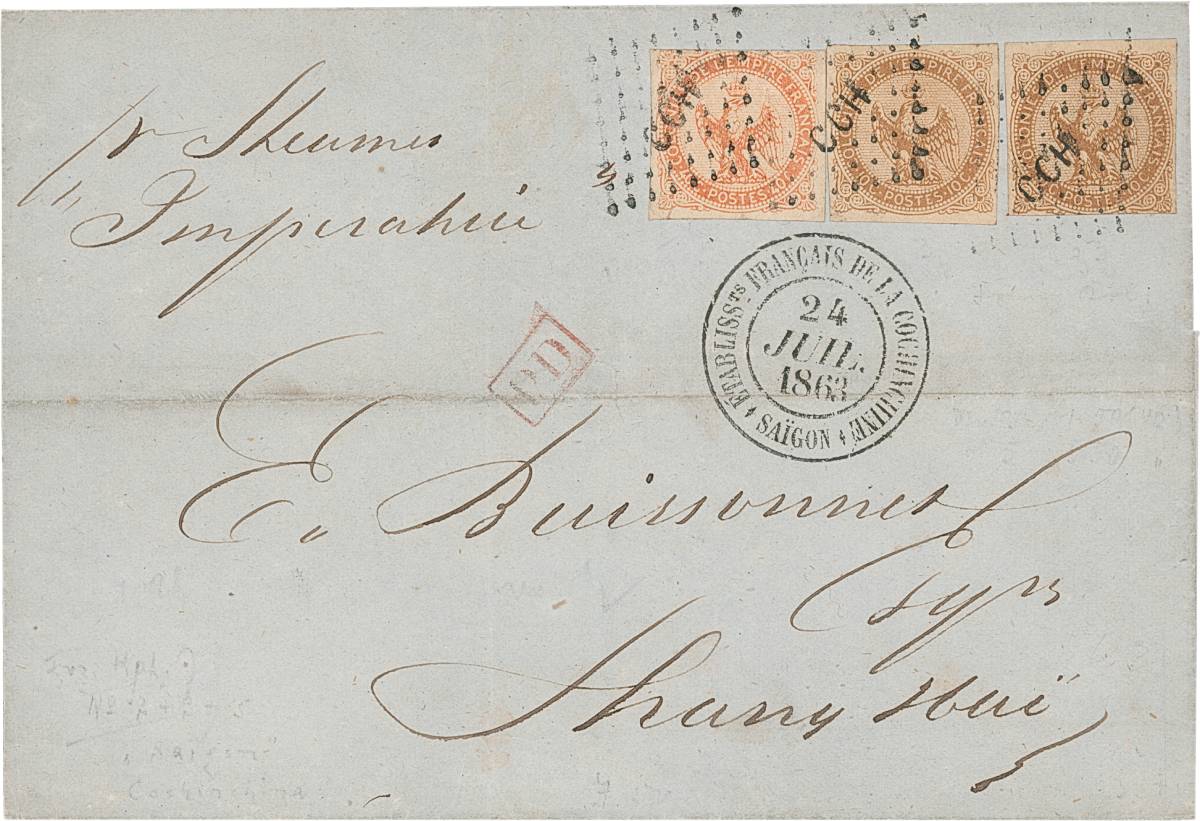 pr Steamer
"Impératrice
COLONIES DE L'EMPIRE FRANÇAIS
POSTES. 40
CCH
COLONIES DE L'EMPIRE FRANÇAIS
POSTES. 10
CCH
COLONIES DE L'EMPIRE FRANÇAIS
POSTES. 10
CCH
PD
ÉTABLISSTS FRANÇAIS DE LA COCHINCHINE
24
JUIL.
1863
SAÏGON
E. Buissonnet
Esqre
Shang Haï
Cochinchina